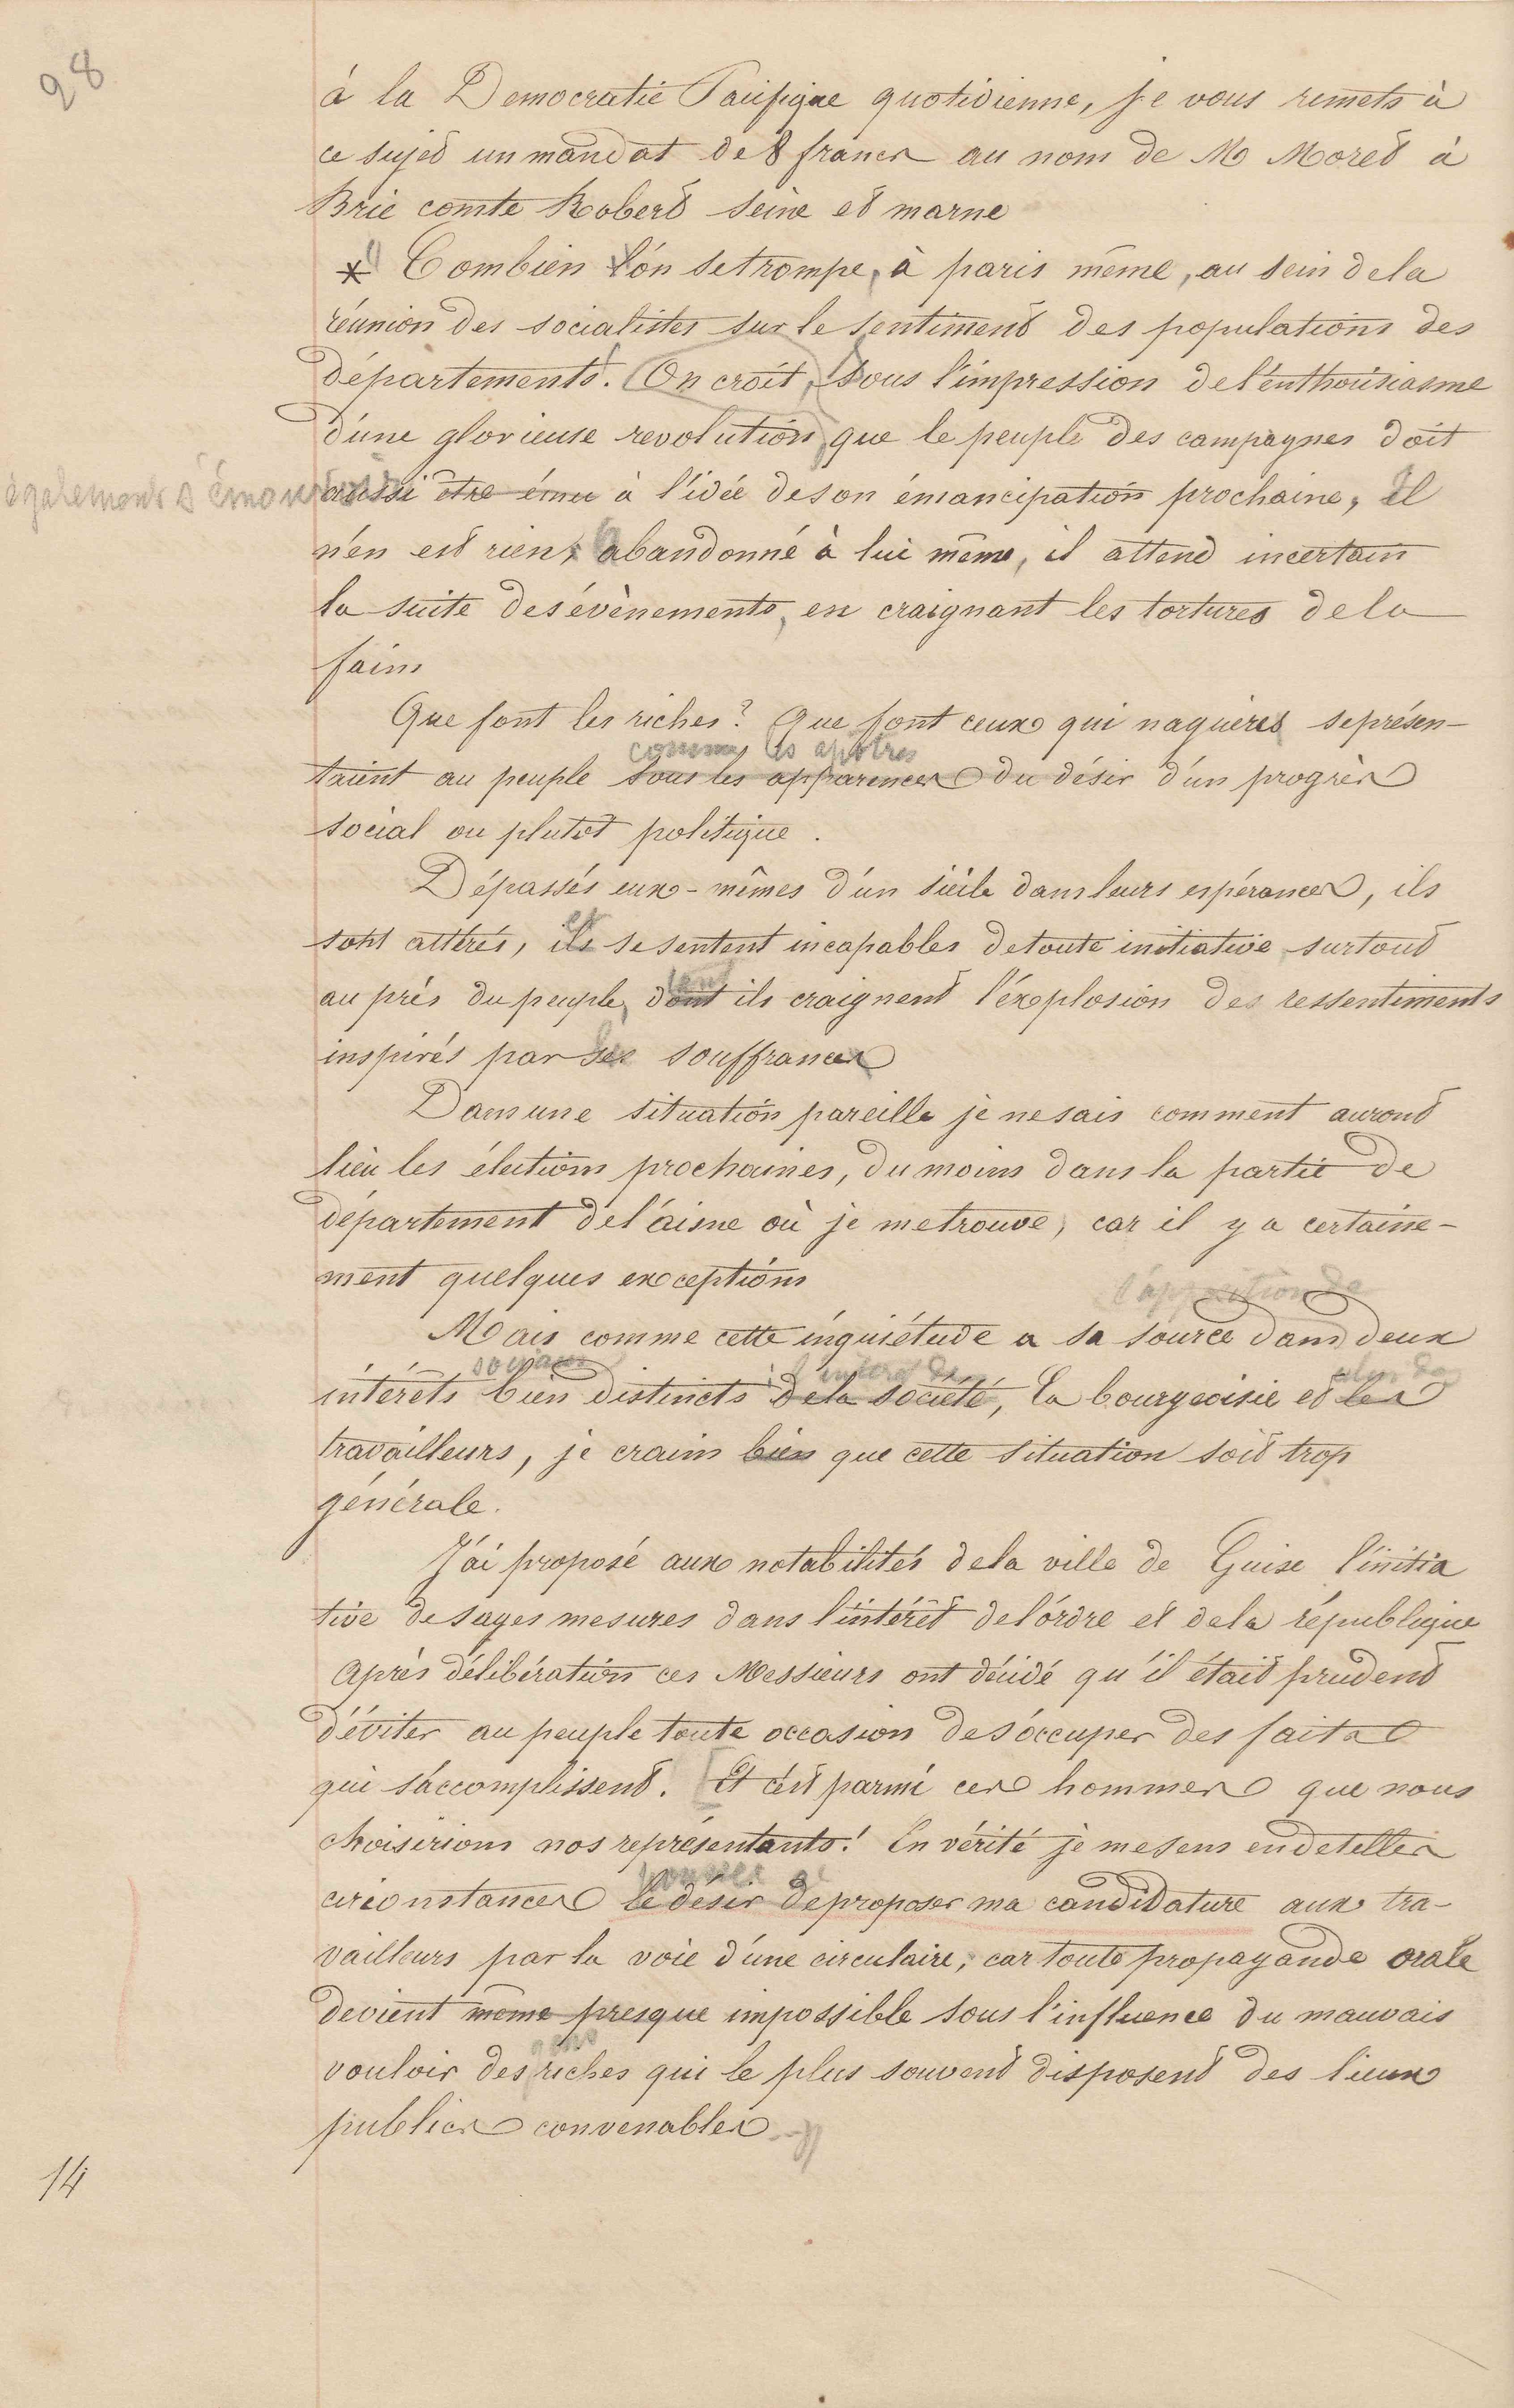 98
à la Democratie Pacifique quotidienne, je vous remets à
ce sujet un mandat de 8 francs au nom de M Moret à
Brie comte Robert Seine et marne
* Combien l'on se trompe, à paris même, au sein de la
réunion des socialistes sur le sentiment des populations des
départements. On croit, sous l'impression de l'enthousiasme
d'une glorieuse revolution, que le peuple des campagnes doit
également s'émouvoir
aussi etre ému à l'idée de son émancipation prochaine, il
n'en est rien, abandonné à lui même, il attend incertain
la suite des évènements, en craignant les tortures de la
faim
Que font les riches? Que font ceux qui naguères se présen-
comme les apôtres
taient au peuple sous les apparences du désir d'un progrès
social ou plutot politique.
Dépassés eux-mêmes d'un siècle dans leurs espérances, ils
et
sont attérés, ils se sentent incapables de toute initiative surtout
tant
au près du peuple, dont ils craignent l'éxplosion des ressentiments
inspirés par ses souffrances
Dans une situation pareille je ne sais comment auront
lieu les élections prochaines, du moins dans la partie de
département de l'aisne où je me trouve, car il y a certaine-
ment quelques exceptions
l'opposition de
Mais comme cette inquiétude a sa source dans deux
sociaux l'intérêt de celui des
intérêts bien distincts de la société, la bourgeoisie et les
travailleurs, je crains bien que cette situation soit trop
générale.
J'ai proposé aux notabilités de la ville de Guise l'initia
tive de sages mesures dans l'intérêt de l'ordre et de la république
Après délibération ces Messieurs ont décidé qu'il était prudent
d'éviter au peuple toute occasion de s'occuper des faits
qui s'accomplissent. Et c'est parmi ces hommes que nous
choisirions nos représentants! En vérité je me sens en de telles
circonstances le désir de proposer ma candidature aux tra-
vailleurs par la voie d'une circulaire, car toute propagande orale
devient même presque impossible sous l'influence du mauvais
gens
vouloir des riches qui le plus souvent disposent des lieux
publics convenables
14